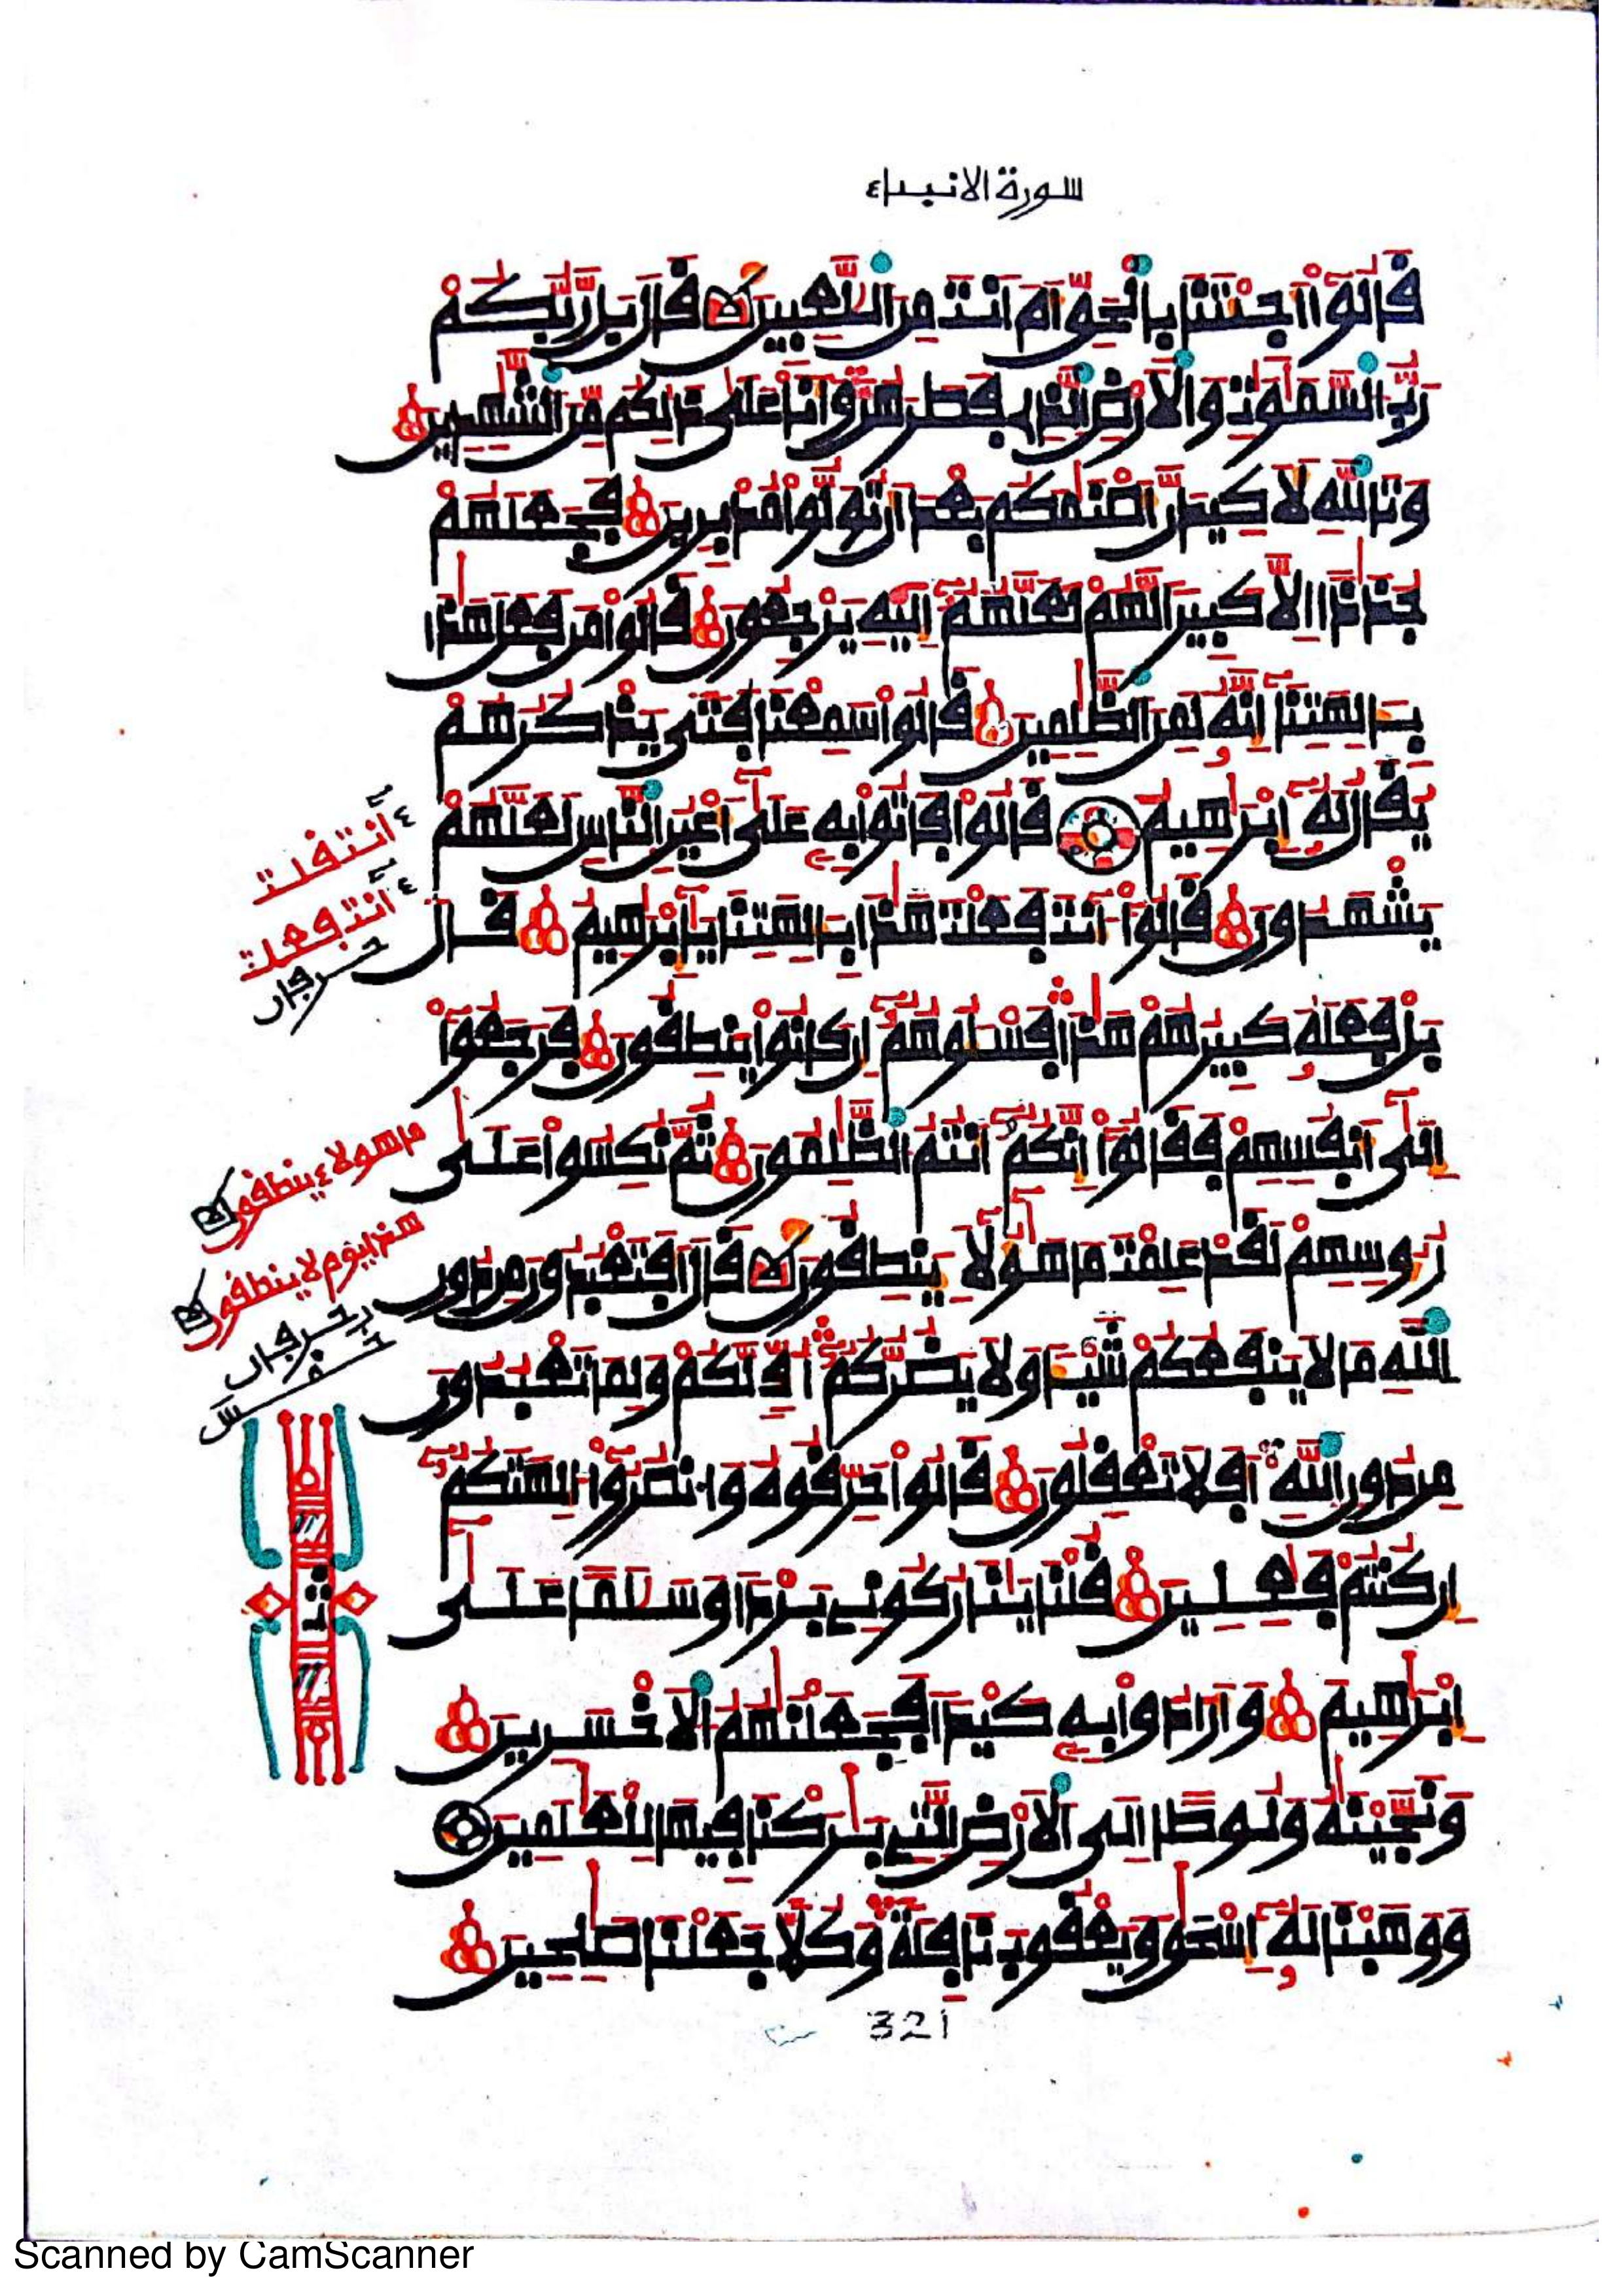 سورة الانبياء
قَالُوٓاْ أَجِئْتَنَا بِالْحَقِّ أَمَ اَنتَ مِنَ اَللَّٰعِبِينَ قَالَ بَل رَّبُّكُمْ
رَبُّ اُلسَّمَٰوَٰتِ وَالْأَرْضِ اِلذِے فَطَرَهُنَّ وَأَنَا عَلَىٰ ذَٰلِكُم مِّنَ اَلشَّٰهِدِينَ
وَتَاللَّهِ لَأَكِيدَنَّ أَصْنَٰمَكُم بَعْدَ أَن تُوَلُّواْ مُدْبِرِينَ فَجَعَلَهُمْ
جُذَٰذًا اِلَّا كَبِيرًا لَّهُمْ لَعَلَّهُمُۥٓ إِلَيْهِ يَرْجِعُونَ قَالُواْ مَن فَعَلَ هَٰذَا
بِـَٔالِهَتِنَآ إِنَّهُۥ لَمِنَ اَلظَّٰلِمِينَ قَالُواْ سَمِعْنَا فَتًى يَذْكُرُهُمْ
يُقَالُ لَهُۥٓ إِبْرَٰهِيمُ قَالُواْ فَاتُواْ بِهِۦ عَلَىٰٓ أَعْيُنِ اِلنَّاسِ لَعَلَّهُمْ
يَشْهَدُونَ قَالُوٓاْ ءَآنتَ فَعَلْتَ هَٰذَا بِـَٔالِهَتِنَا يَٰٓإِبْرَٰهِيمُ قَالَ
بَلْ فَعَلَهُۥ كَبِيرُهُمْ هَٰذَا فَسْـَٔلُوهُمُۥٓ إِن كَانُواْ يَنطِقُونَ فَرَجَعُوٓاْ
إِلَىٰٓ أَنفُسِهِمْ فَقَالُوٓاْ إِنَّكُمُۥٓ أَنتُمُ اُلظَّٰلِمُونَ ثُمَّ نُكِسُواْ عَلَىٰ
رُءُوسِهِمْ لَقَدْ عَلِمْتَ مَا هَٰٓؤُلَآءِ يَنطِقُونَ قَالَ أَفَتَعْبُدُونَ مِن دُونِ
اِللَّهِ مَا لَا يَنفَعُكُمْ شَيْـًٔا وَلَا يَضُرُّكُمُۥٓ أُفٍّ لَّكُمْ وَلِمَا تَعْبُدُونَ
مِن دُونِ اِللَّهِ أَفَلَا تَعْقِلُونَ قَالُواْ حَرِّقُوهُ وَانصُرُوٓاْ ءَالِهَتَكُمُۥٓ
إِن كُنتُمْ فَٰعِلِينَ قُلْنَا يَٰنَارُ كُونِے بَرْدًا وَسَلَٰمًا عَلَىٰٓ
إِبْرَٰهِيمَ وَأَرَادُواْ بِهِۦ كَيْدًا فَجَعَلْنَٰهُمُ اُلْأَخْسَرِينَ
وَنَجَّيْنَٰهُ وَلُوطًا اِلَى اَلْأَرْضِ اِلتِے بَٰرَكْنَا فِيهَا لِلْعَٰلَمِينَ
وَوَهَبْنَا لَهُۥٓ إِسْحَٰقَ وَيَعْقُوبَ نَافِلَةً وَكُلًّا جَعَلْنَا صَٰلِحِينَ
ءَانت قلت
ءَانت فعلت
حرفان
ما هولاء ينطقون
هذا يوم لا ينطقون
حرفان
ثمن
321
Scanned by CamScanner